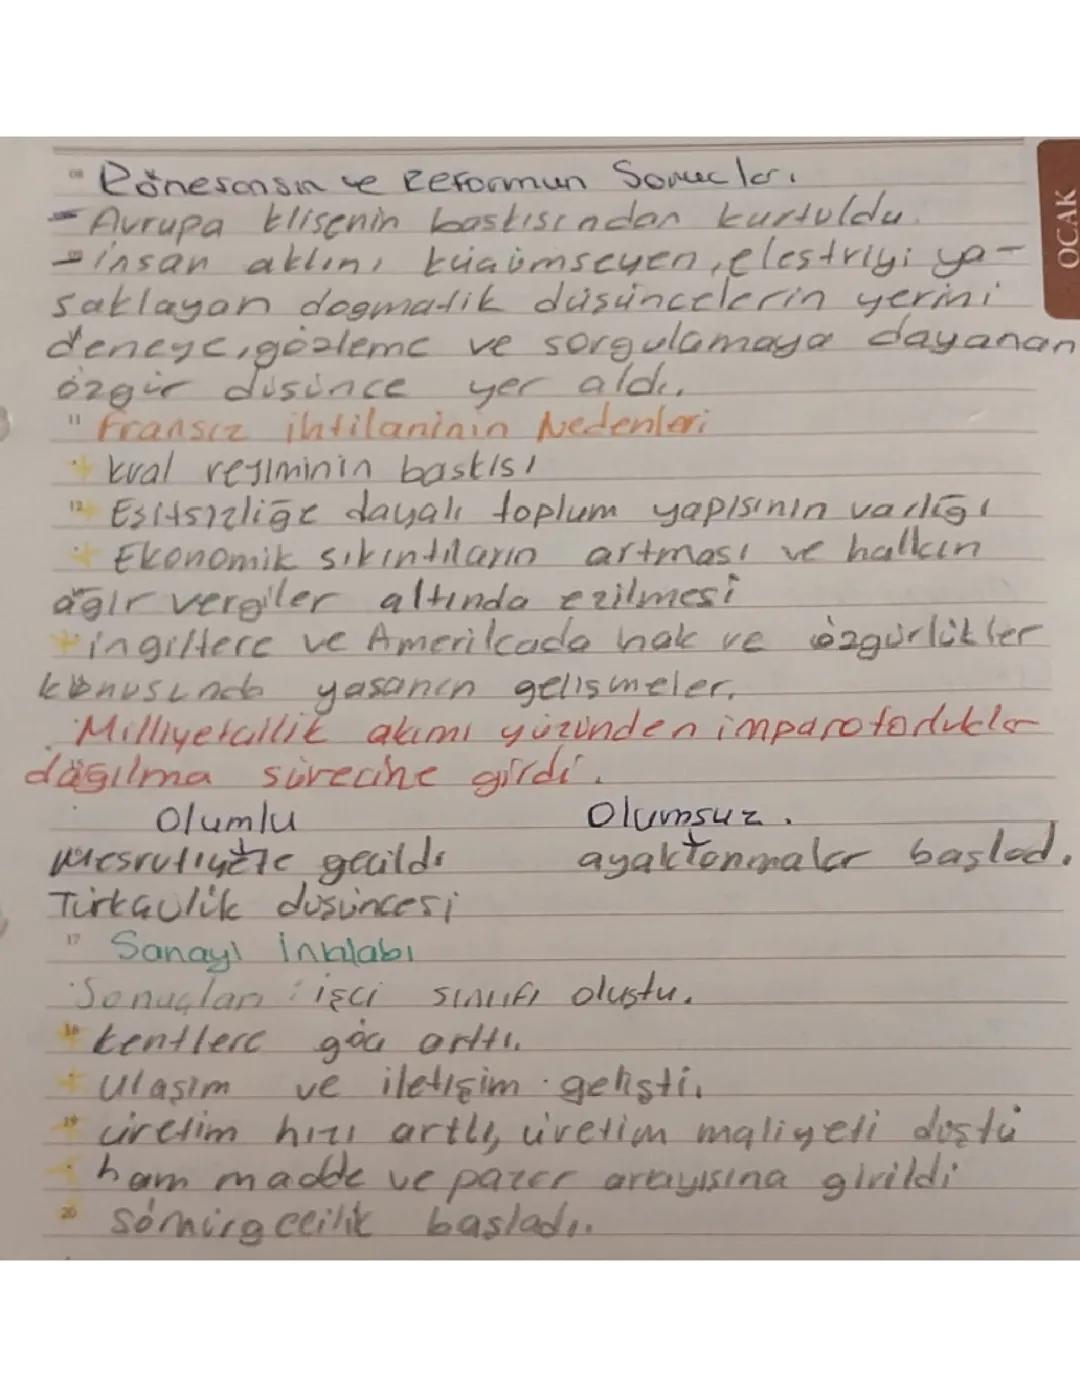 Rönesansın ve Reformun Sonucları
- Avrupa klisenin baskısından kurtuldu.
- insan aklını küçümseyen, elestriyi ya-
saklayan dogmatik düsüncelerin yerini
deneye, gözleme ve sorgulamaya dayanan
özgür düsünce yer aldı.
Fransız ihtilaninin Nedenleri
kral rejiminin baskısı
Esitsizliğe dayalı toplum yapısının varlığı
Ekonomik sıkıntıların artması ve halkın
ağır vergiler altında ezilmesi
ingiltere ve Amerikada hak ve özgürlükler
konusunda yasanan gelişmeler.
Milliyetcillik akımı yüzünden imparotorluklar
dağılma sürecine girdi.
Olumlu Olumsuz.
Mesrutiyete gecildi ayaktanmalar başladı.
Türkçülik düsüncesi
17 Sanayi İnkılabı
Sonuçları: işçi sınıfı oluştu.
18 kentlere göç arttı.
Ulaşım ve iletişim gelişti.
19 üretim hızı arttı, üretim maliyeti düştü
ham madde ve pazar arayısına girildi
20 sömürgecilik başladı.
OCAK